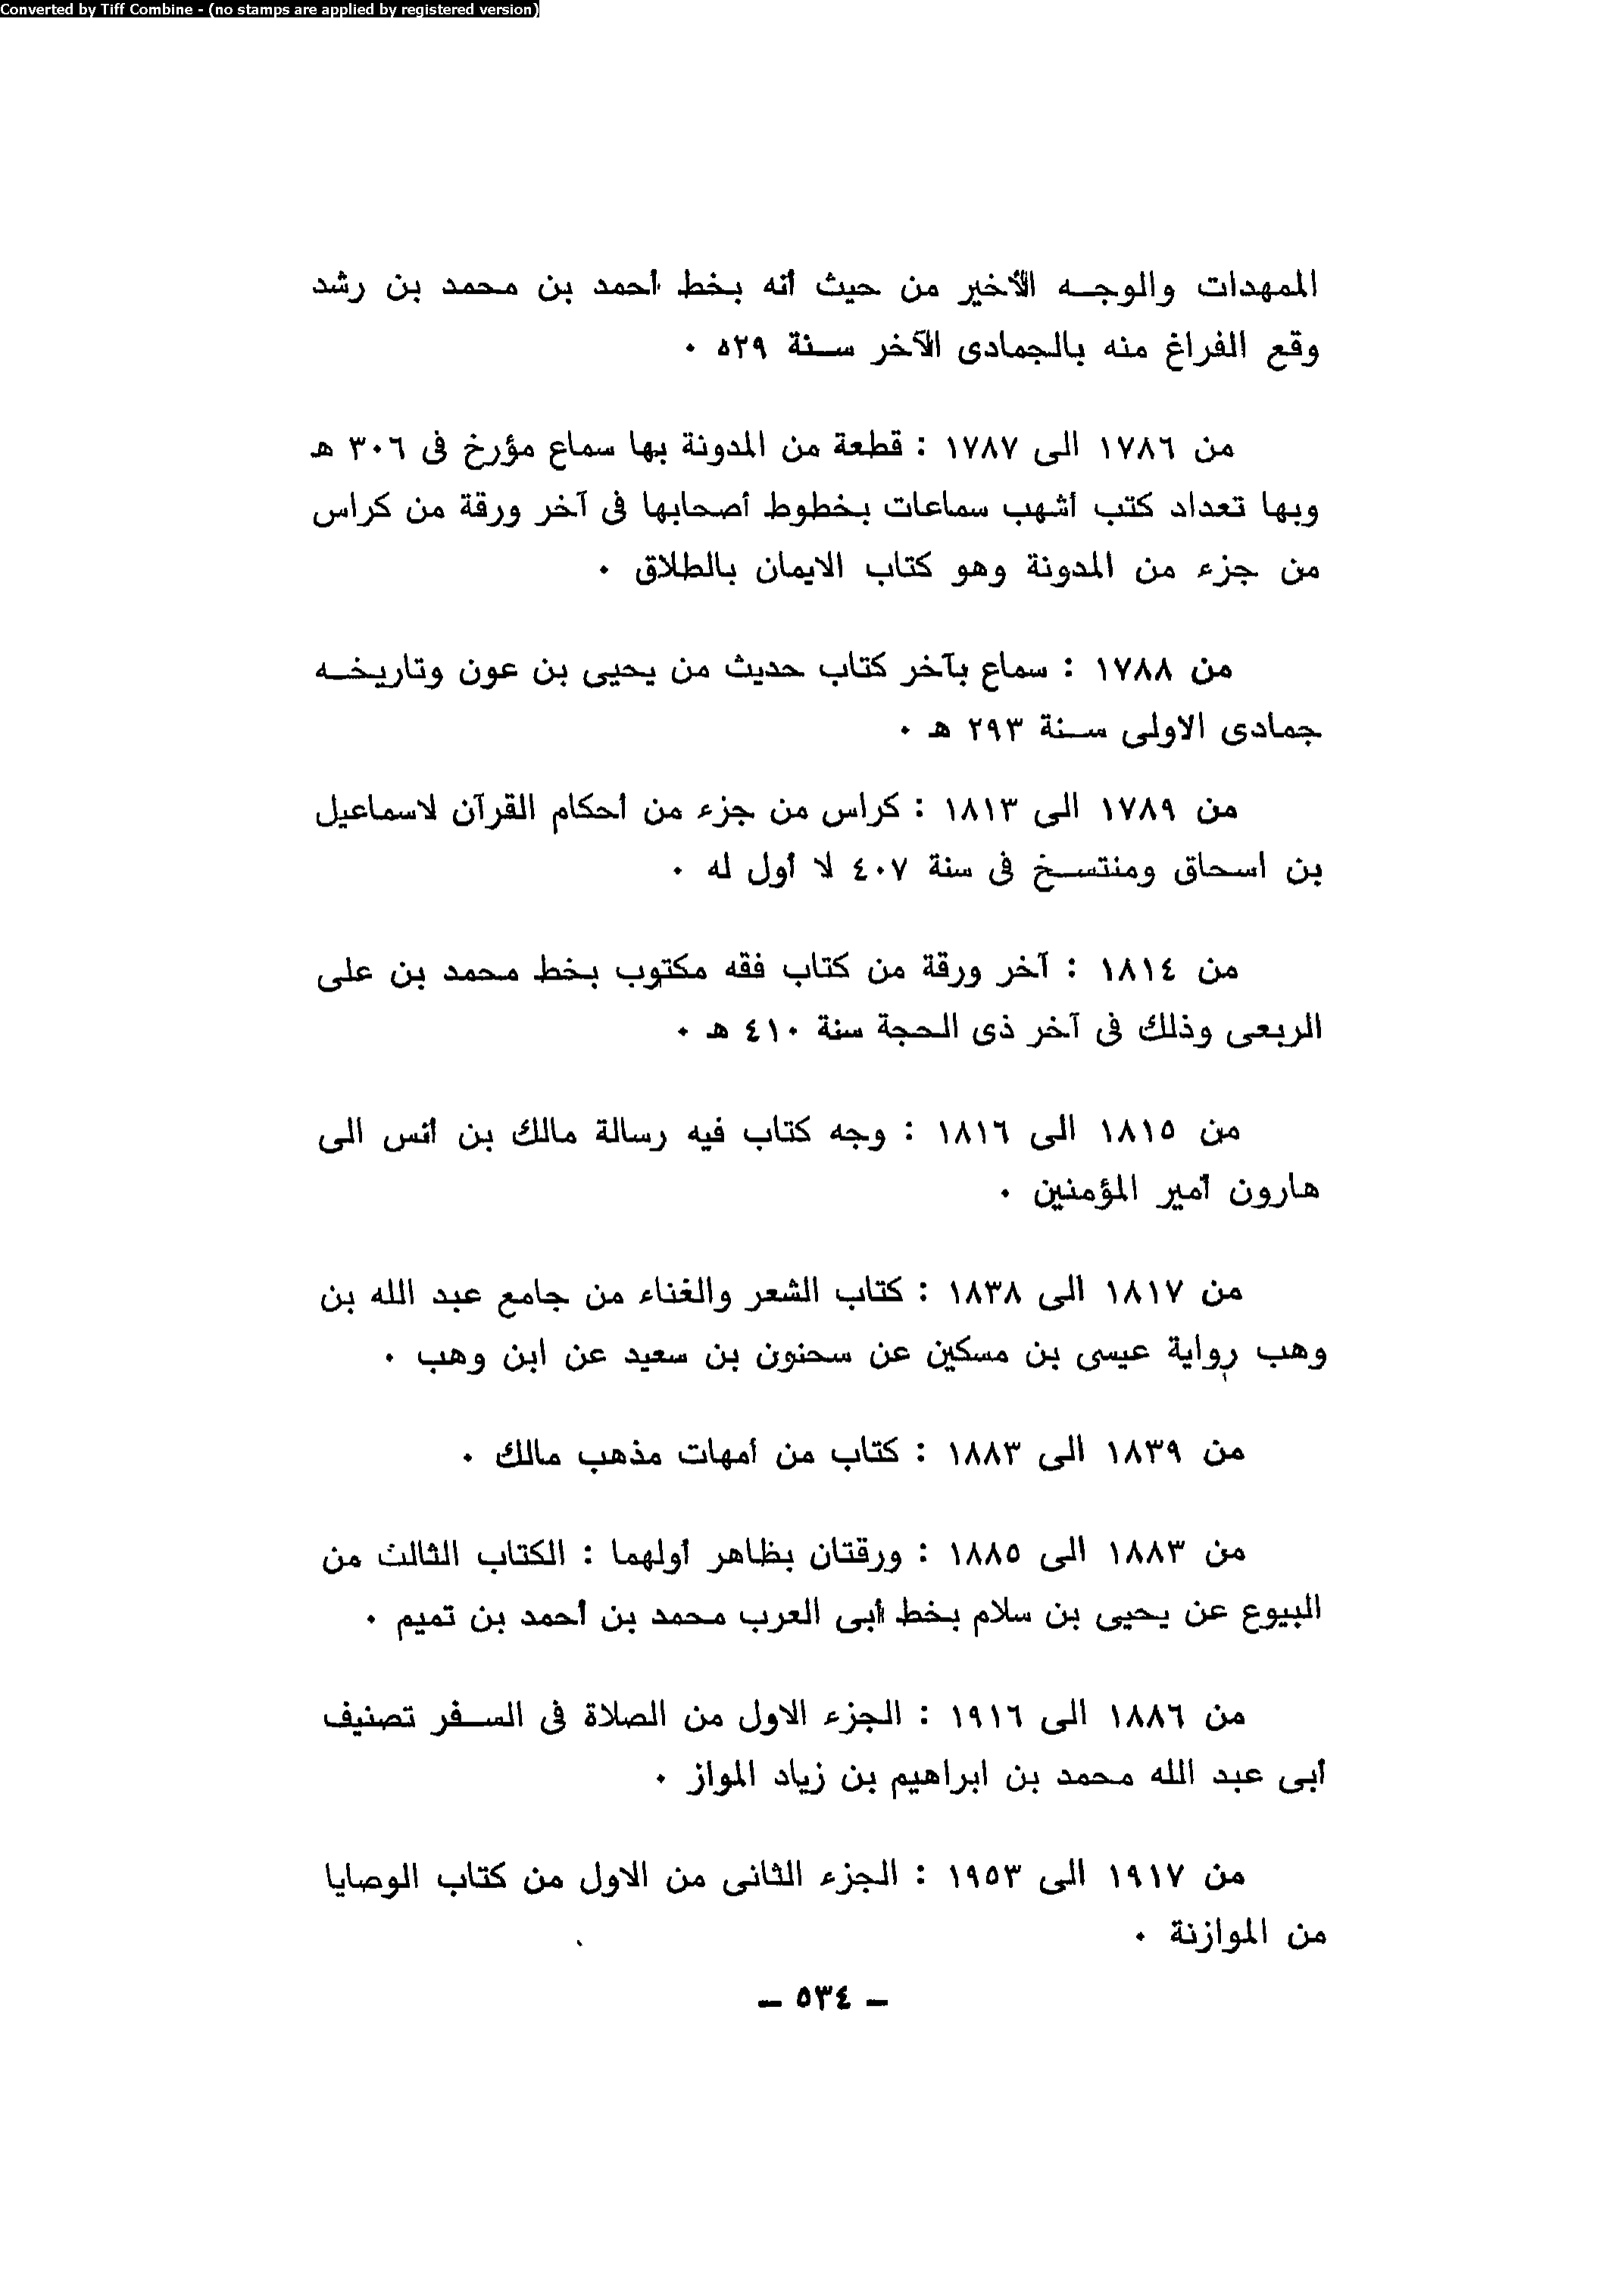 Converted by Tiff Combine - (no stamps are applied by registered version)
الممهدات والوجـــه الأخير من حيث أنه بخط أحمد بن محمد بن رشد
وقع الفراغ منه بالجمادى الآخر ســنة ٥٢٩ ٠
من ١٧٨٦ الى ١٧٨٧ : قطعة من المدونة بها سماع مؤرخ فى ٣٠٦ هـ
وبها تعداد كتب أشهب سماعات بخطوط أصحابها فى آخر ورقة من كراس
من جزء من المدونة وهو كتاب الايمان بالطلاق ٠
من ١٧٨٨ : سماع بآخر كتاب حديث من يحيى بن عون وتاريخــه
جمادى الاولى ســنة ٢٩٣ هـ ٠
من ١٧٨٩ الى ١٨١٣ : كراس من جزء من أحكام القرآن لاسماعيل
بن اسحاق ومنتســخ فى سنة ٤٠٧ لا أول له ٠
من ١٨١٤ : آخر ورقة من كتاب فقه مكتوب بخط محمد بن على
الربعى وذلك فى آخر ذى الحجة سنة ٤١٠ هـ ٠
من ١٨١٥ الى ١٨١٦ : وجه كتاب فيه رسالة مالك بن أنس الى
هارون أمير المؤمنين ٠
من ١٨١٧ الى ١٨٣٨ : كتاب الشعر والغناء من جامع عبد الله بن
وهب رواية عيسى بن مسكين عن سحنون بن سعيد عن ابن وهب ٠
من ١٨٣٩ الى ١٨٨٣ : كتاب من أمهات مذهب مالك ٠
من ١٨٨٣ الى ١٨٨٥ : ورقتان بظاهر أولهما : الكتاب الثالث من
البيوع عن يحيى بن سلام بخط أبى العرب محمد بن أحمد بن تميم ٠
من ١٨٨٦ الى ١٩١٦ : الجزء الاول من الصلاة فى الســفر تصنيف
أبى عبد الله محمد بن ابراهيم بن زياد المواز ٠
من ١٩١٧ الى ١٩٥٣ : الجزء الثانى من الاول من كتاب الوصايا
من الموازنة ٠
– ٥٣٤ –